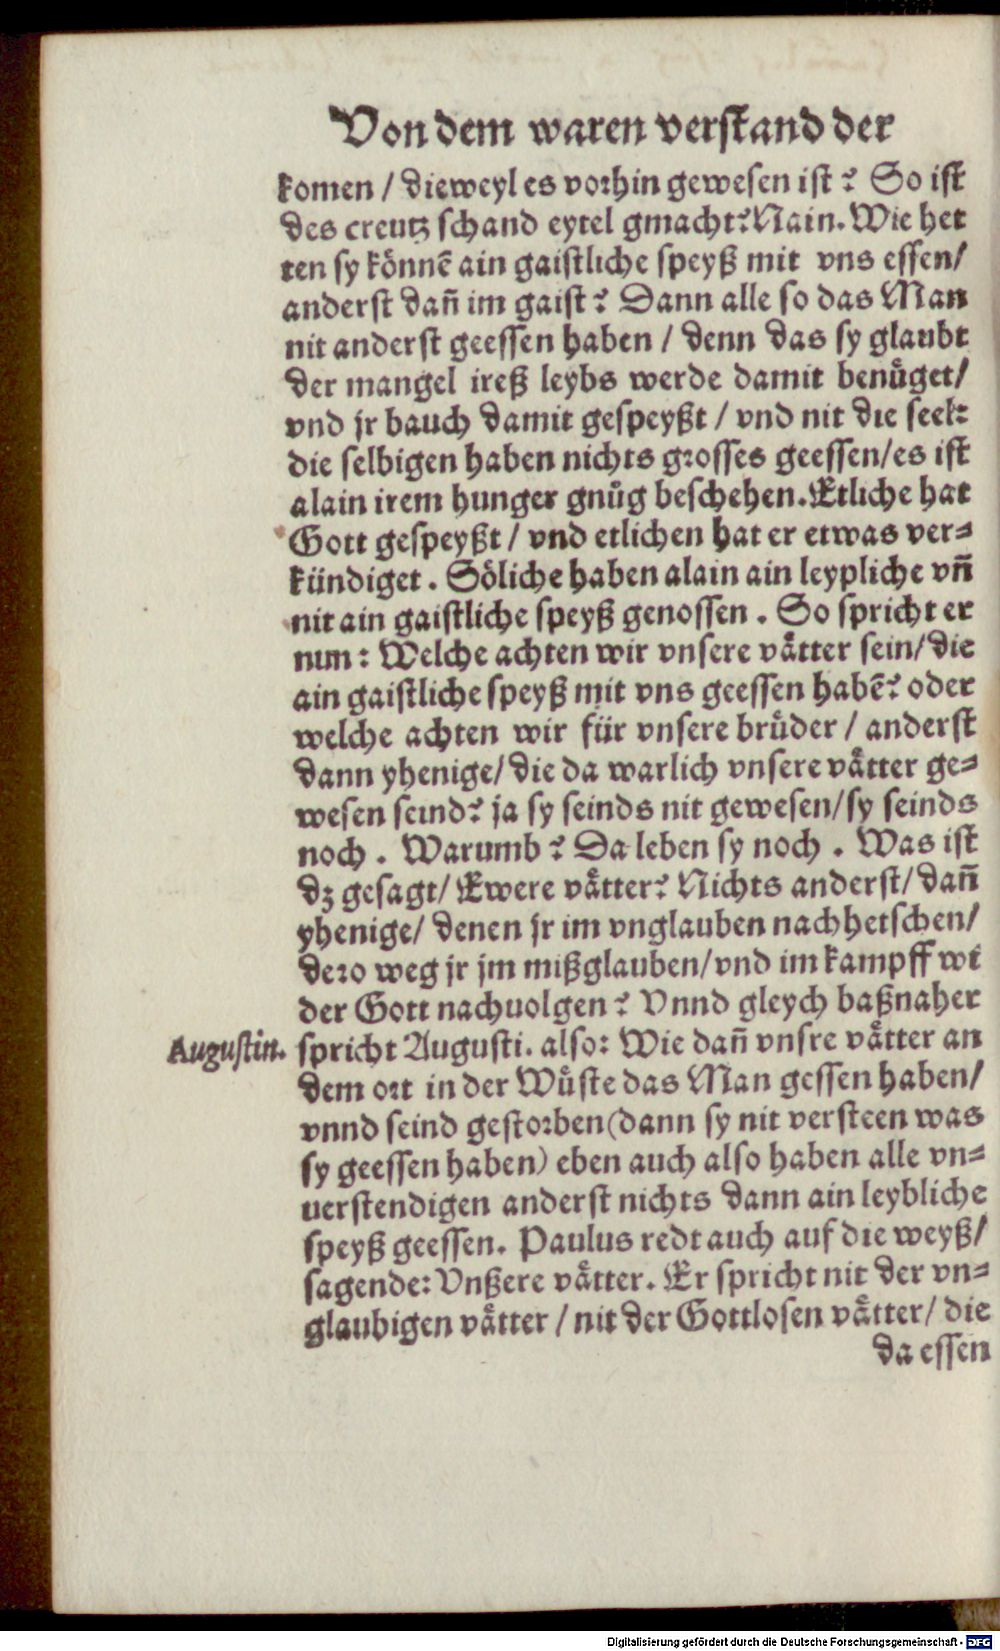 Von dem waren verstand der
komen / dieweyl es vorhin gewesen ist? So ist
des creutz schand eytel gmacht? Nain. Wie het
ten sy könnē ain gaistliche speyß mit vns essen/
anderst dañ im gaist? Dann alle so das Man
nit anderst geessen haben / denn das sy glaubt
der mangel ireß leybs werde damit benuͤget/
vnd jr bauch damit gespeyßt / vnd nit die seel:
die selbigen haben nichts grosses geessen/es ist
alain irem hunger gnuͤg beschehen. Etliche hat
Gott gespeyßt / vnd etlichen hat er etwas ver-
kündiget. Söliche haben alain ain leypliche vñ
nit ain gaistliche speyß genossen. So spricht er
nun: Welche achten wir vnsere vaͤtter sein/die
ain gaistliche speyß mit vns geessen habē? oder
welche achten wir für vnsere bruͤder / anderst
dann yhenige/ die da warlich vnsere vaͤtter ge-
wesen seind? ja sy seinds nit gewesen/sy seinds
noch. Warumb? Da leben sy noch. Was ist
dz gesagt/ Ewere vaͤtter? Nichts anderst/ dañ
yhenige/ denen jr im vnglauben nachhetschen/
dero weg jr jm mißglauben/vnd im kampff wi
der Gott nachuolgen? Vnnd gleych baßnaher
Augustin.
spricht Augusti. also: Wie dañ vnsre vaͤtter an
dem ort in der Wuͤste das Man gessen haben/
vnnd seind gestorben (dann sy nit versteen was
sy geessen haben) eben auch also haben alle vn-
uerstendigen anderst nichts dann ain leybliche
speyß geessen. Paulus redt auch auf die weyß/
sagende: Vnßere vaͤtter. Er spricht nit der vn-
glaubigen vaͤtter / nit der Gottlosen vaͤtter/ die
da essen
Digitalisierung gefördert durch die Deutsche Forschungsgemeinschaft - DFG